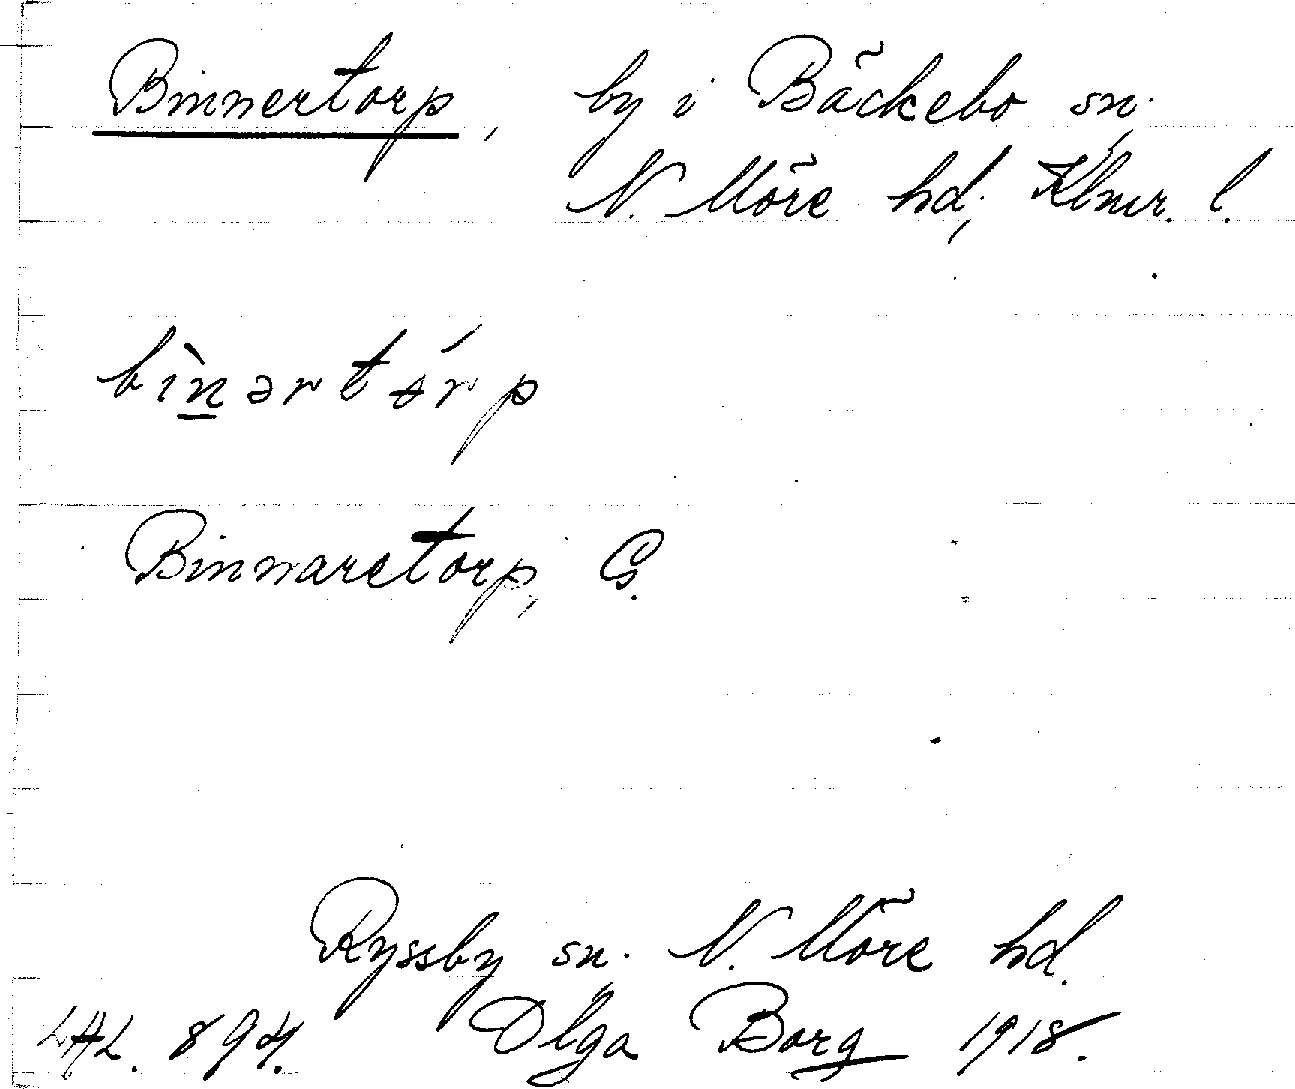 Binnertorp, by i Bäckebo sn.
N. Möre hd, Klmr. l.
bìn̲ərtɵ́rp
Binnaretorp, G.
Ryssby sn. N. Möre hd.
LAL. 894. Olga Borg 1918.